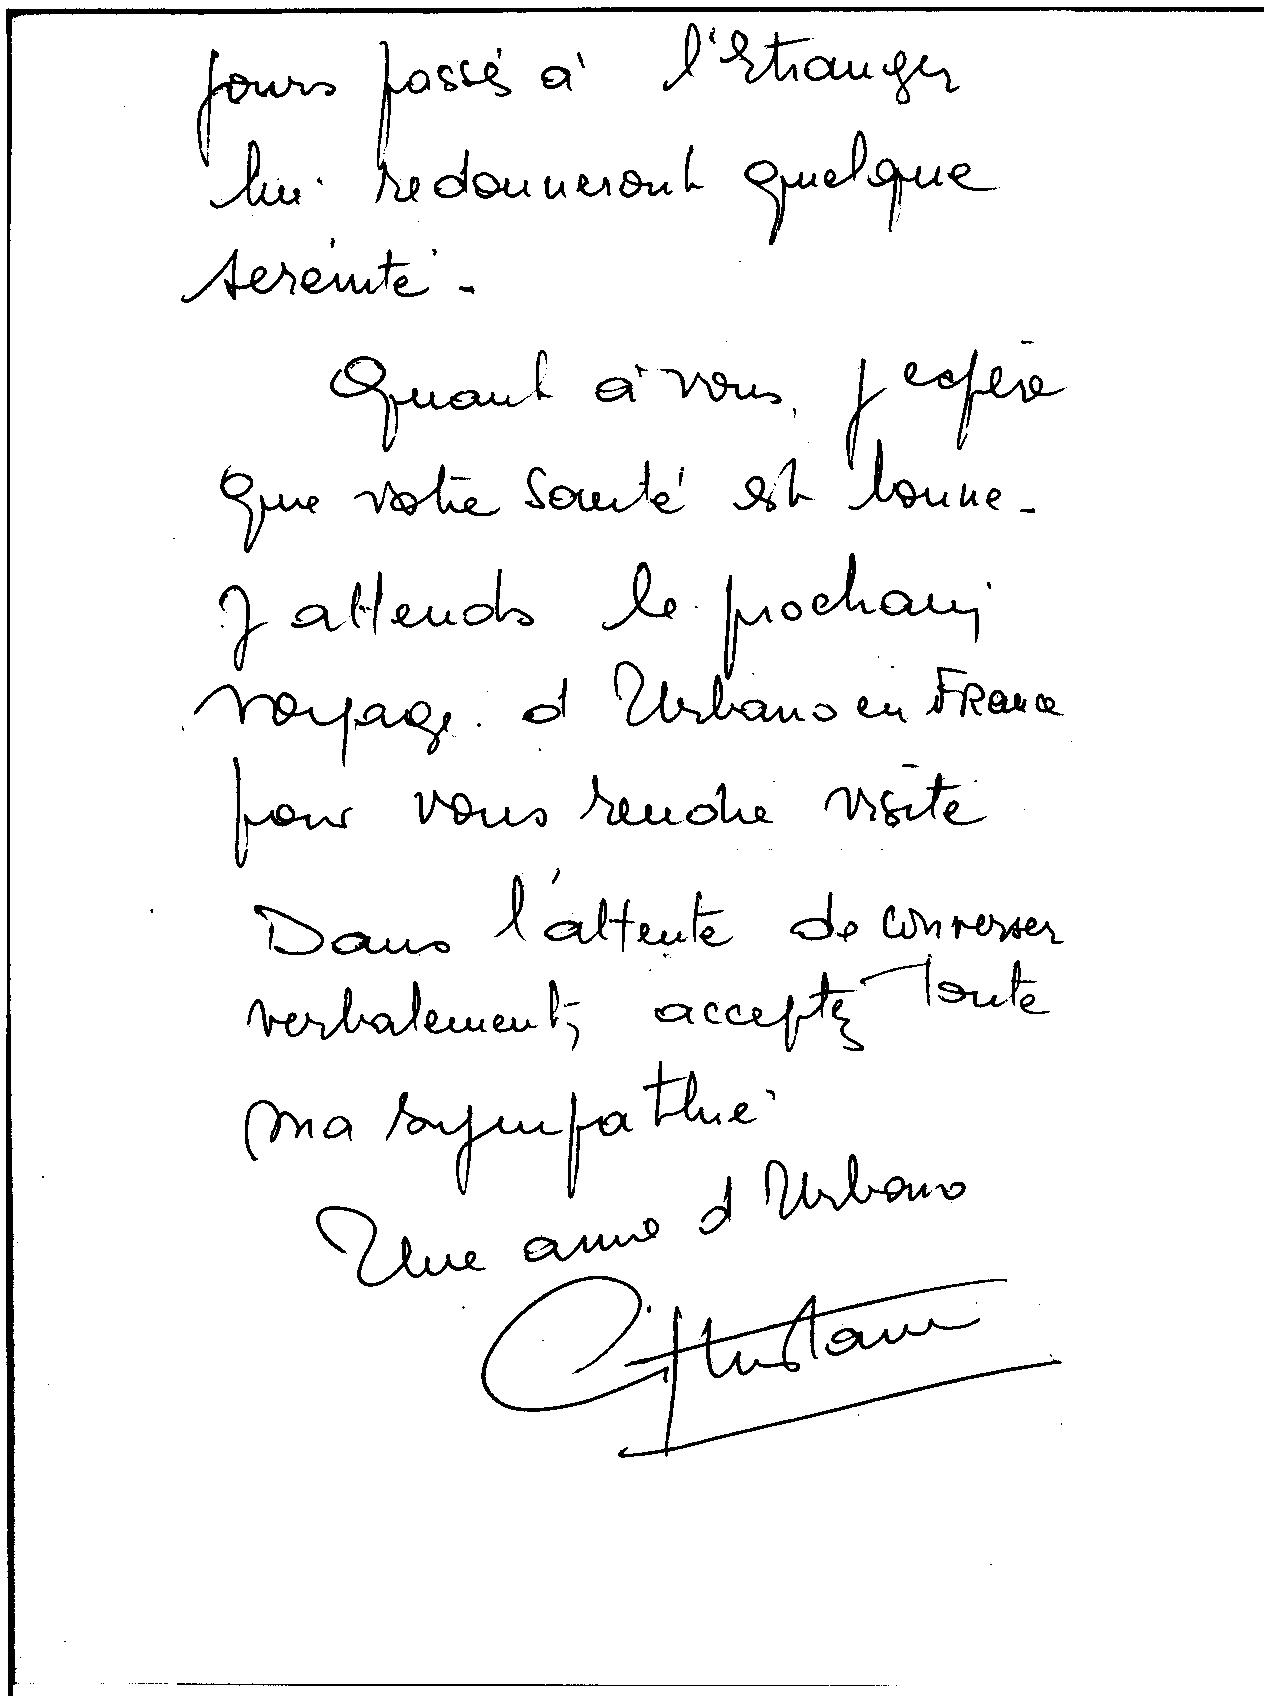 jours passés à l'Etranger
lui redonneront quelque
sérénité -
Quant à vous, j espère
que votre santé est bonne -
J attends le prochain
voyage d Urbano en France
pour vous rendre visite
Dans l'attente de converser
verbalement, acceptez toute
ma sympathie
Une amie d Urbano